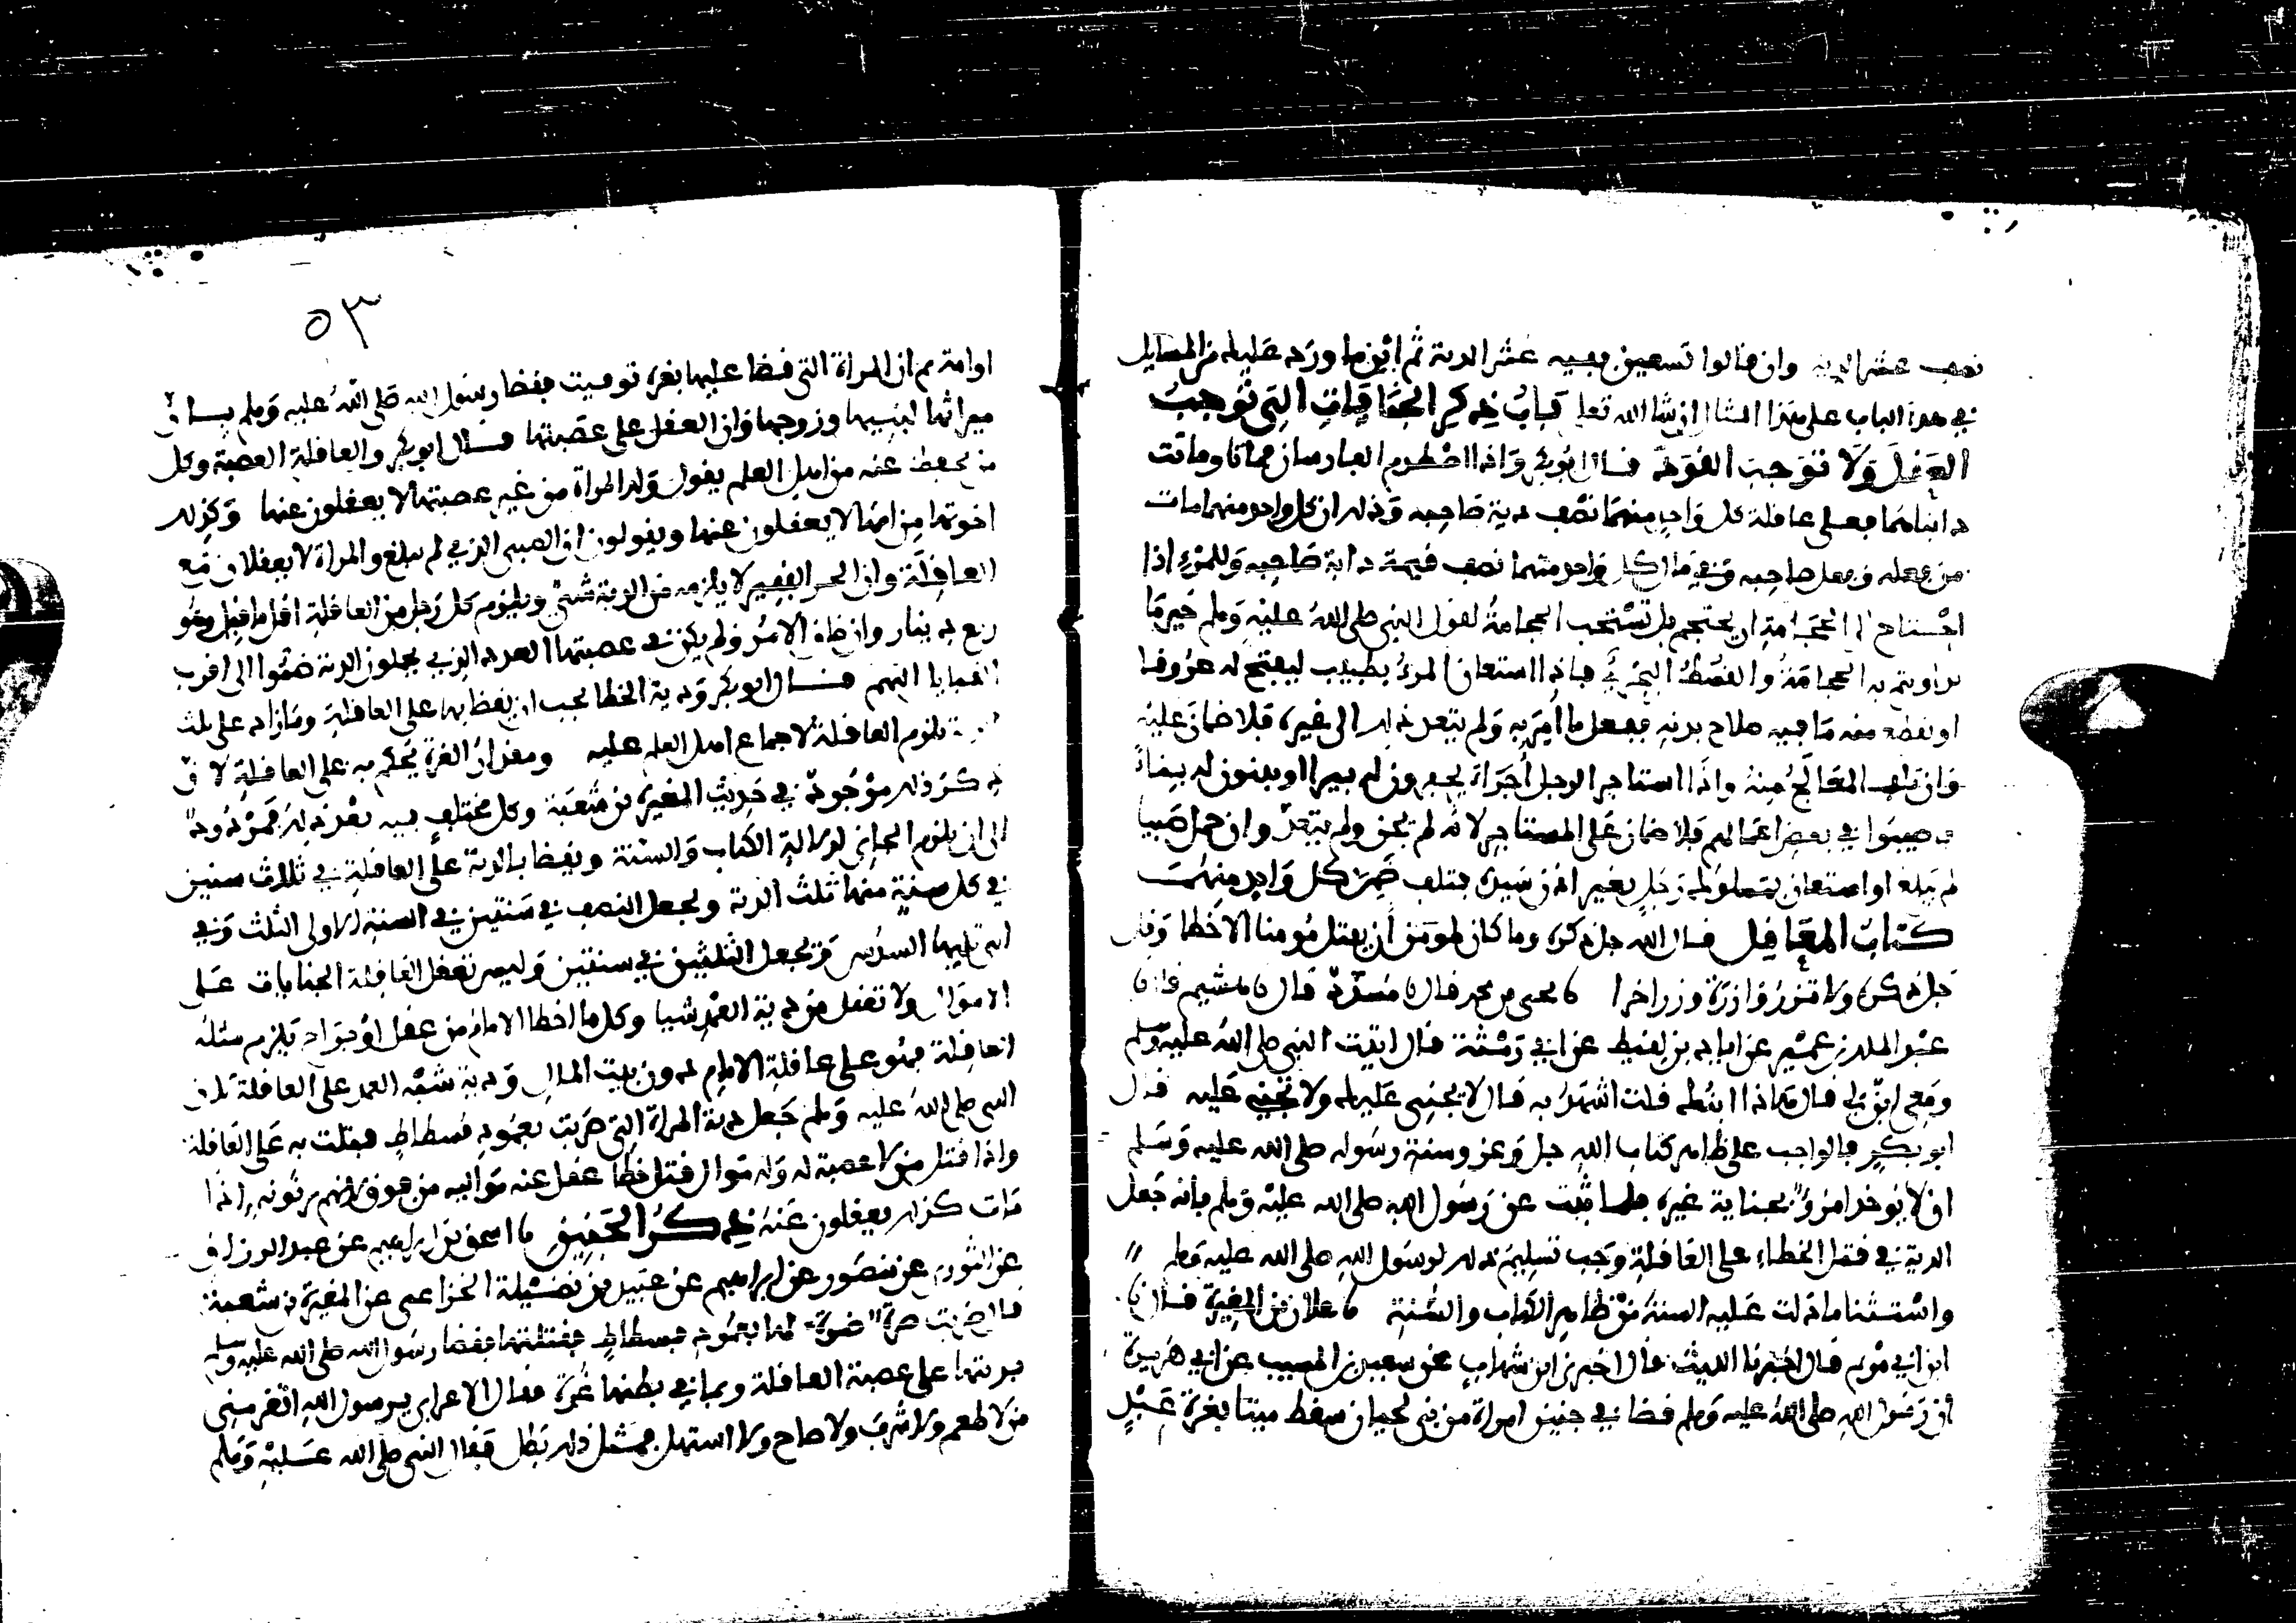 نصف عشر الدية وان قالوا تسعين ففيه عشر الدية ثم ابن ما ورد عليك من المسايل
في هذا الباب على هذا المثال ان شا الله تعلى باب ذكر الجنايات التي توجب
العقل ولا توجب القود قال ابو بكر واذا اصطدم الفارسان فماتا وماتت
دابتاهما فعلى عاقلة كل واحد منهما نصف دية صاحبه وذلك ان كل واحد منهما مات
من فعله وفعل صاحبه وفي مال كل واحد منهما نصف قيمة دابة صاحبه وللمرء اذا
احتاج الى الحجامة ان يحتجم بل تستحب الحجامة لقول النبي صلى الله عليه وسلم خير ما
تداويتم به الحجامة والقسط البحري فاذا استعان المرء بطبيب ليفتح له عروقا
او يقطع منه ما فيه صلاح بدنه ففعل ما امر به ولم يتعد ذلك الى غيره فلا ضمان عليه
وان تلف المعالج منه واذا استاجر الرجل اجراء يحفرون له بيرا او يبنون له بناء
فاصيبوا في بعض اعمالهم فلا ضمان على المستاجر لانه لم يجن ولم يتعد وان حمل صبيا
لم يبلغ او استعان بمملوك رجل بغير اذن سيده فتلف ضمن كل واحد منهما
كتاب المعاقل قال الله جل ذكره وما كان لمومن ان يقتل مومنا الا خطا وقال
جل ذكره ولا تزر وازرة وزر اخرا نا يحيى بن محمد قال نا مسدد قال نا هشيم قال نا
عبد الملك بن عمير عن اياد بن لقيط عن ابي رمثة قال اتيت النبي صلى الله عليه وسلم
ومعي ابن لي فقال هذا ابنك قلت اشهد به قال لا يجني عليك ولا تجني عليه قال
ابو بكر فالواجب على ظاهر كتاب الله جل وعز وسنة رسوله صلى الله عليه وسلم
ان لا يوخذ امرؤ بجناية غيره فلما ثبت عن رسول الله صلى الله عليه وسلم بانه جعل
الدية في قتل الخطاء على العاقلة وجب تسليم ذلك لرسول الله صلى الله عليه وسلم
واستثنا ما دلت عليه السنة من ظاهر الكتاب والسنة نا علان بن المغيرة قال نا
ابن ابي مريم قال اخبرنا الليث قال اخبرني ابن شهاب عن سعيد بن المسيب عن ابي هريرة
ان رسول الله صلى الله عليه وسلم قضا في جنين امراة من بني لحيان سقط ميتا بغرة عبد
٥٣
او امة ثم ان المراة التي قضا عليها بغرة توفيت فقضا رسول الله صلى الله عليه وسلم بان
ميراثها لبنيها وزوجها وان العقل على عصبتها قال ابو بكر والعاقلة العصبة وكل
من يحفظ عنه من اهل العلم يقول ولد المراة من غير عصبتها لا يعقلون عنها وكذلك
اخوتها من امها لا يعقلون عنها ويقولون ان الصبي الذي لم يبلغ والمراة لا يعقلان مع
العاقلة وان الحر الفقير لا يلزمه من الدية شي ويلزم كل رجل من العاقلة اقل ما قيل وهو
ربع دينار وان ضاق الامر ولم يكن في عصبتها العدد الذي يحملون الدية ضموا الى اقرب
القبايل اليهم قال ابو بكر ودية الخطا يجب ان يقضا بها على العاقلة وما زاد على ثلث
الدية تلزم العاقلة لاجماع اهل العلم عليه ومقدار الغرة يحكم به على العاقلة لان
ذكر ذلك موجود في حديث المغيرة بن شعبة وكل مختلف فيه بعد ذلك فمردود
الى ان يلزم الجاني لدلالة الكتاب والسنة ويقضا بالدية على العاقلة في ثلاث سنين
في كل سنة منها ثلث الدية ويجعل النصف في سنتين في السنة الاولى الثلث وفي
التي تليها السدس ويجعل الثلثين في سنتين وليس تعقل العاقلة الجنايات على
الاموال ولا تعقل من دية العمد شيا وكل ما اخطا الامام من عقل او جراح يلزم مثله
العاقلة فهو على عاقلة الامام دون بيت المال ودية شبه العمد على العاقلة لان
النبي صلى الله عليه وسلم جعل دية المراة التي ضربت بعمود فسطاط فقتلت به على العاقلة
واذا قتل من لا عصبة له وله موال قتل خطا عقل عنه مواليه من فوق لانهم يرثونه اذا
مات كذلك يعقلون عنه ذكر الجنين نا اسحق بن ابراهيم عن عبد الرزاق
عن الثوري عن منصور عن ابراهيم عن عبيد بن نضيلة الخزاعي عن المغيرة بن شعبة
قال ضربت ضرة ضرة لها بعمود فسطاط فقتلتها فقضا رسول الله صلى الله عليه وسلم
بديتها على عصبة العاقلة وبما في بطنها غرة فقال الاعرابي يرسول الله اتغرمني
من لا طعم ولا شرب ولا صاح ولا استهل فمثل ذلك بطل فقال النبي صلى الله عليه وسلم